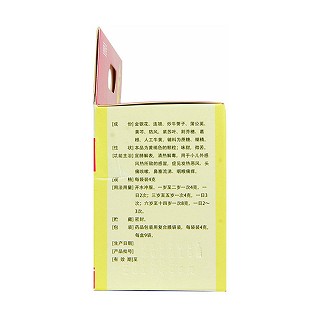 [成　份] 金银花、连翘、炒牛蒡子、蒲公英、
黄芩、防风、紫苏叶、荆芥穗、葛
根、人工牛黄，辅料为蔗糖、糊精。
[性　状] 本品为黄褐色的颗粒；味甜、微苦。
[功能主治] 宣肺解表，清热解毒。用于小儿外感
风热所致的感冒，症见发热恶风、头
痛咳嗽、鼻塞流涕、咽喉痛痒。
[规　格] 每袋装4克
[用法用量] 开水冲服。一岁至二岁一次4克，一
日2次；三岁至五岁一次4克，一日3
次；六岁至十四岁一次8克，一日2~
3次。
[贮　藏] 密封。
[包　装] 药品包装用复合膜袋装，每袋装4克，
每盒9袋。
[生产日期]
[产品批号]
[有 效 期]至